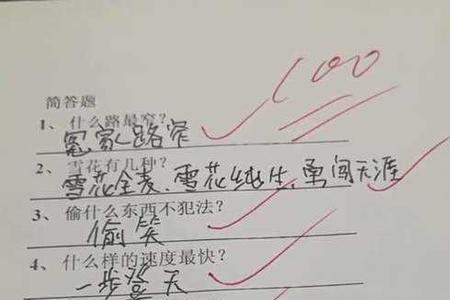 100
简答题
1、什么路最窄?
冤家路窄
2、雪花有几种?
雪花全麦、雪花纯生、勇闯天涯
3、偷什么东西不犯法?
偷笑
4、什么样的速度最快?
一步登天